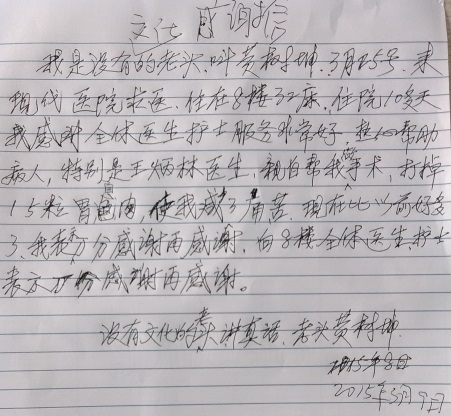 文化 感谢信
我是没有的老头,叫黄材坤,3月25号,来
现代医院求医,住在8楼32床,住院10多天
我感谢全体医生护士服务非常好 热心帮助
病人,特别是王炳林医生,亲自帮我手术,打掉
15粒胃肉,使我减了痛苦,现在比以前好多
了,我表万分感谢再感谢,向8楼全体医生护士
表示万分感谢再感谢。
没有文化的老头讲真话,老头黄材坤
2015年8日
2015年5月9日